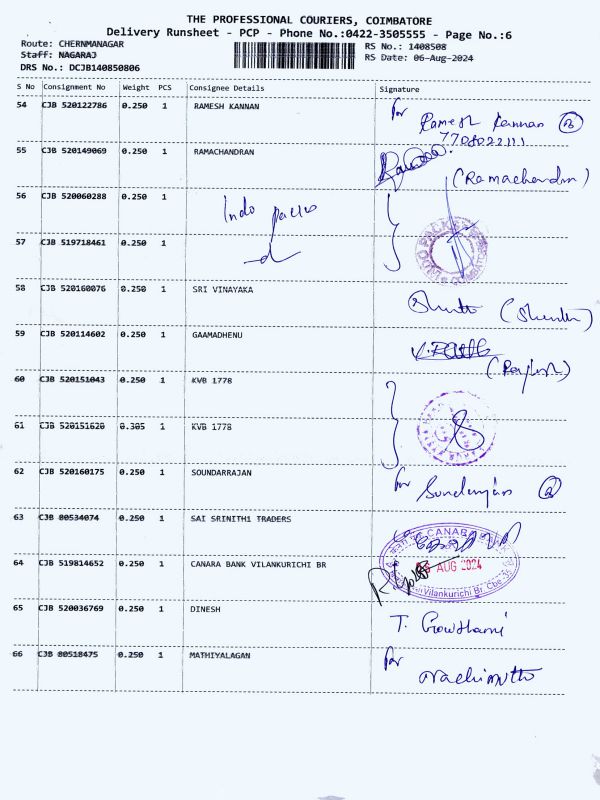 THE PROFESSIONAL COURIERS, COIMBATORE
Delivery Runsheet - PCP - Phone No.:0422-3505555 - Page No.:6
Route: CHERNMANAGAR
RS No.: 1408508
Staff: NAGARAJ
RS Date: 06-Aug-2024
DRS No.: DCJB140850806
S No Consignment No Weight PCS Consignee Details Signature
54 CJB 520122786 0.250 1 RAMESH KANNAN for Ramesh Kannan
55 CJB 520149069 0.250 1 RAMACHANDRAN (Ramachandran)
56 CJB 520060288 0.250 1 Indo
57 CJB 519718461 0.250 1 COIMBATORE
58 CJB 520160076 0.250 1 SRI VINAYAKA
59 CJB 520114602 0.250 1 GAAMADHENU
60 CJB 520151043 0.250 1 KVB 1778
61 CJB 520151620 0.305 1 KVB 1778
62 CJB 520160175 0.250 1 SOUNDARRAJAN for
63 CJB 80534074 0.250 1 SAI SRINITHI TRADERS
CANARA BANK
64 CJB 519814652 0.250 1 CANARA BANK VILANKURICHI BR AUG 2024
Vilankurichi Br. Cbe-35
65 CJB 520036769 0.250 1 DINESH T. Gowthami
66 CJB 80518475 0.250 1 MATHIYALAGAN for
Nachimuthu